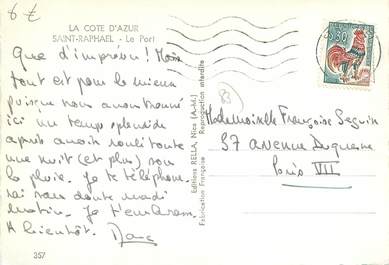 6 €
LA COTE D'AZUR
SAINT-RAPHAEL - Le Port
Que d'imprévu ! Mais
tout est pour le mieux
puisque nous avons trouvé
ici un temps splendide
après avoir roulé toute
une nuit (et plus) sous
la pluie. Je te télépho-
nerai sans doute mardi
matin. Je t'embrasse.
A bientôt.
Marc
357
Editions RELLA, Nice (A.-M.)
Fabrication Française
Reproduction interdite
0,30
83
Mademoiselle Françoise Seguin
37 avenue Duquesne
Paris VII